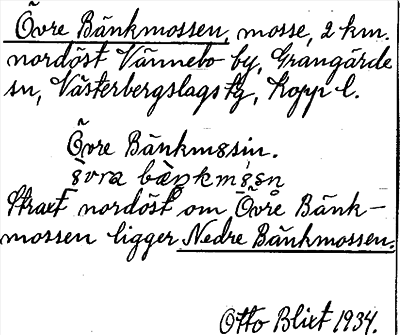 Övre Bänkmossen, mosse, 2 km.
nordöst Vännebo by, Grangärde
sn, Västerbergslags tg, Kopp l.
Övre Bänkm8sin.
Straxt nordöst om Övre Bänk-
mossen ligger Nedre Bänkmossen.
Otto Blixt 1934.